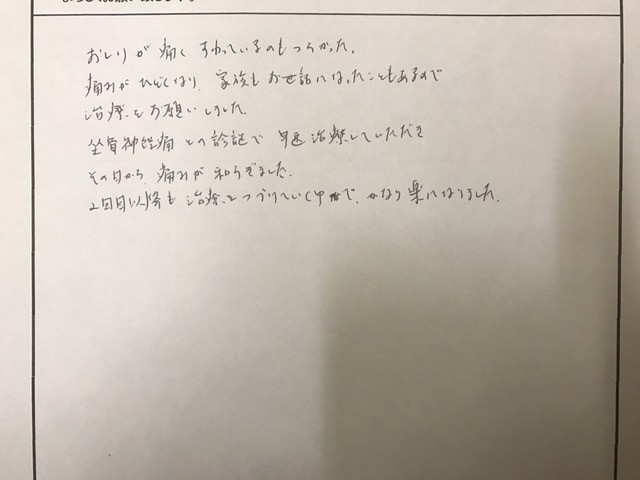 おしりが痛く すわっているのもつらかった。
痛みがひどくなり、家族もお世話になったこともあるので
治療をお願いしました。
坐骨神経痛との診証で 早速治療していただき
その日から、痛みが和らぎました。
2回目以降も 治療をつづけていく中で、かなり楽になりました。